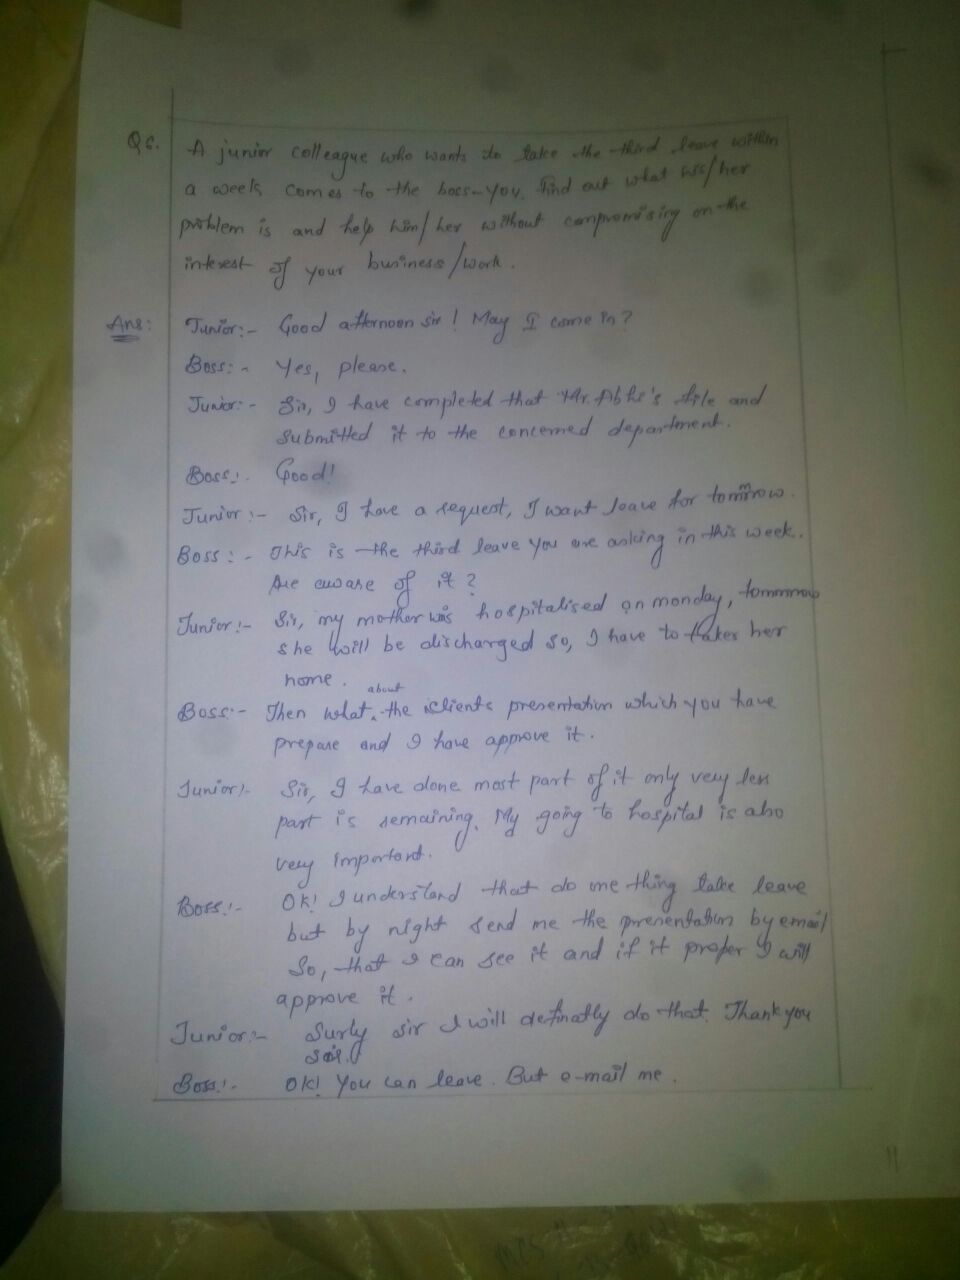 Q6. A junior colleague who wants to take the third leave within
a week comes to the boss-you. Find out what his/her
problem is and help him/her without compromising on the
interest of your business/work.
Ans: Junior:- Good afternoon sir! May I come in?
Boss:- Yes, please.
Junior:- Sir, I have completed that Mr. file and
submitted it to the concerned department.
Boss:- Good!
Junior:- Sir, I have a request, I want leave for tomrrow.
Boss:- This is the third leave you are asking in this week.
Are aware of it?
Junior:- Sir, my mother was hospitalised on monday, tommrrow
she will be discharged so, I have to taker her
home.
Boss:- Then what about the clients presentation which you have
prepare and I have approve it.
Junior:- Sir, I have done most part of it only very less
part is remaining. My going to hospital is also
very important.
Boss:- OK! I understand that do one thing take leave
but by night send me the presentation by email
So, that I can see it and if it proper I will
approve it.
Junior:- Surly sir I will definatly do that. Thank you
sir.
Boss:- OK! You can leave. But e-mail me.
11